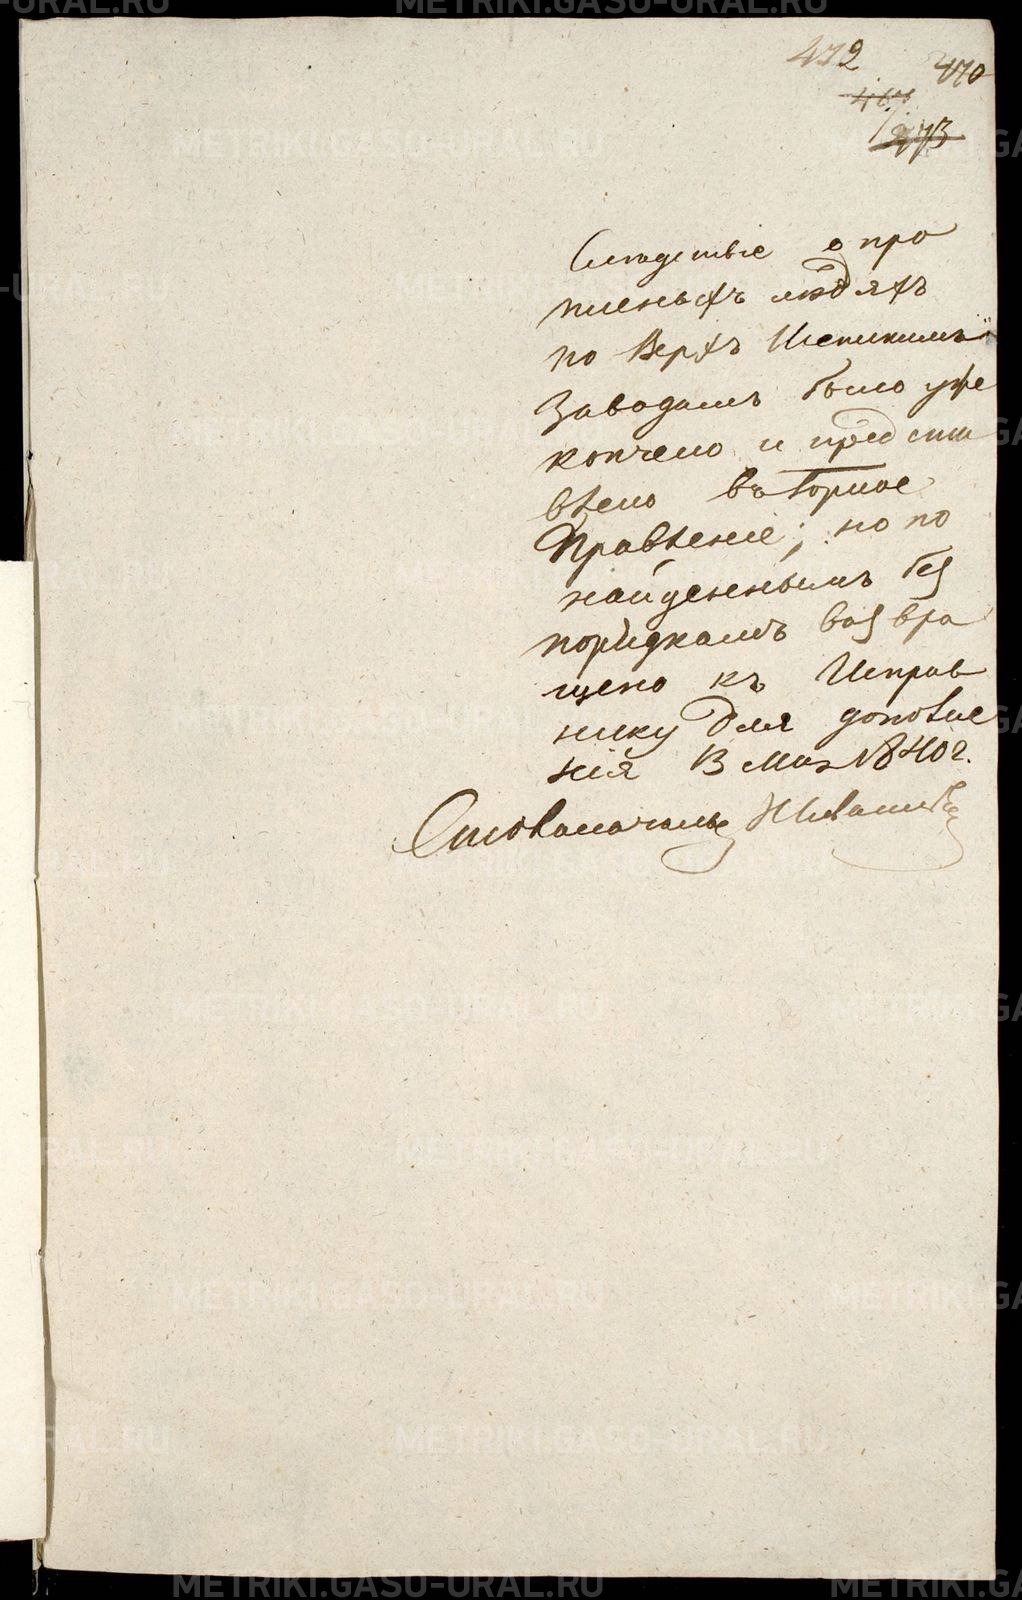 472 470
467
473
Следствіе о про
пленыхъ людяхъ
по Верхъ Исетскимъ
Заводамъ было уже
кончено и предста
влено въ Горное
Правленіе; но по
найденнымъ без
порядкамъ воз вра
щено къ Исправ
нику для дополне
нія В Маѣ 1840 г.
Столоначаль